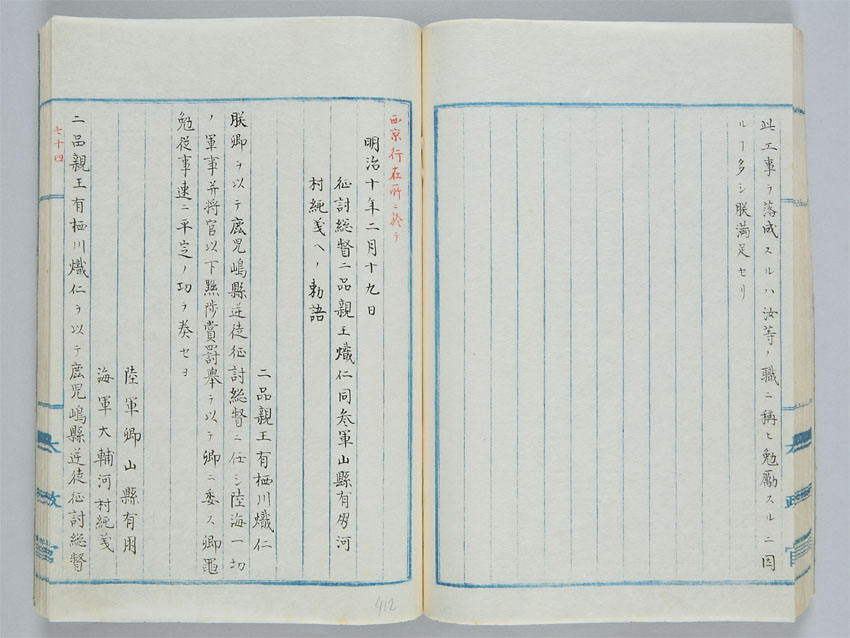 此工事ヲ落成スルハ汝等ノ職ニ稱ヒ勉勵スルニ因
ルヿ多シ朕滿足セリ
西京行在所ニ於テ
明治十年二月十九日
征討総督二品親王熾仁同参軍山縣有朋河
村純義ヘノ勅語
二品親王有栖川熾仁
朕卿ヲ以テ鹿児嶋縣逆徒征討総督ニ任シ陸海一切
ノ軍事并将官以下黜陟賞罰擧テ以テ卿ニ委ス卿黽
勉従事速ニ平定ノ功ヲ奏セヨ
陸軍卿山縣有朋
海軍大輔河村純義
二品親王有栖川熾仁ヲ以テ鹿児嶋縣逆徒征討総督
七十四
太政官
412